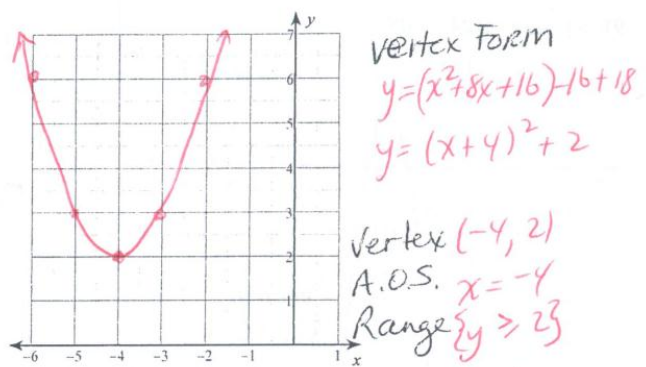 y
7
6
5
4
3
2
1
-6 -5 -4 -3 -2 -1 1 x
vertex Form
y=(x²+8x+16)-16+18
y=(x+4)²+2
vertex (-4, 2)
A.O.S. x=-4
Range {y ≥ 2}